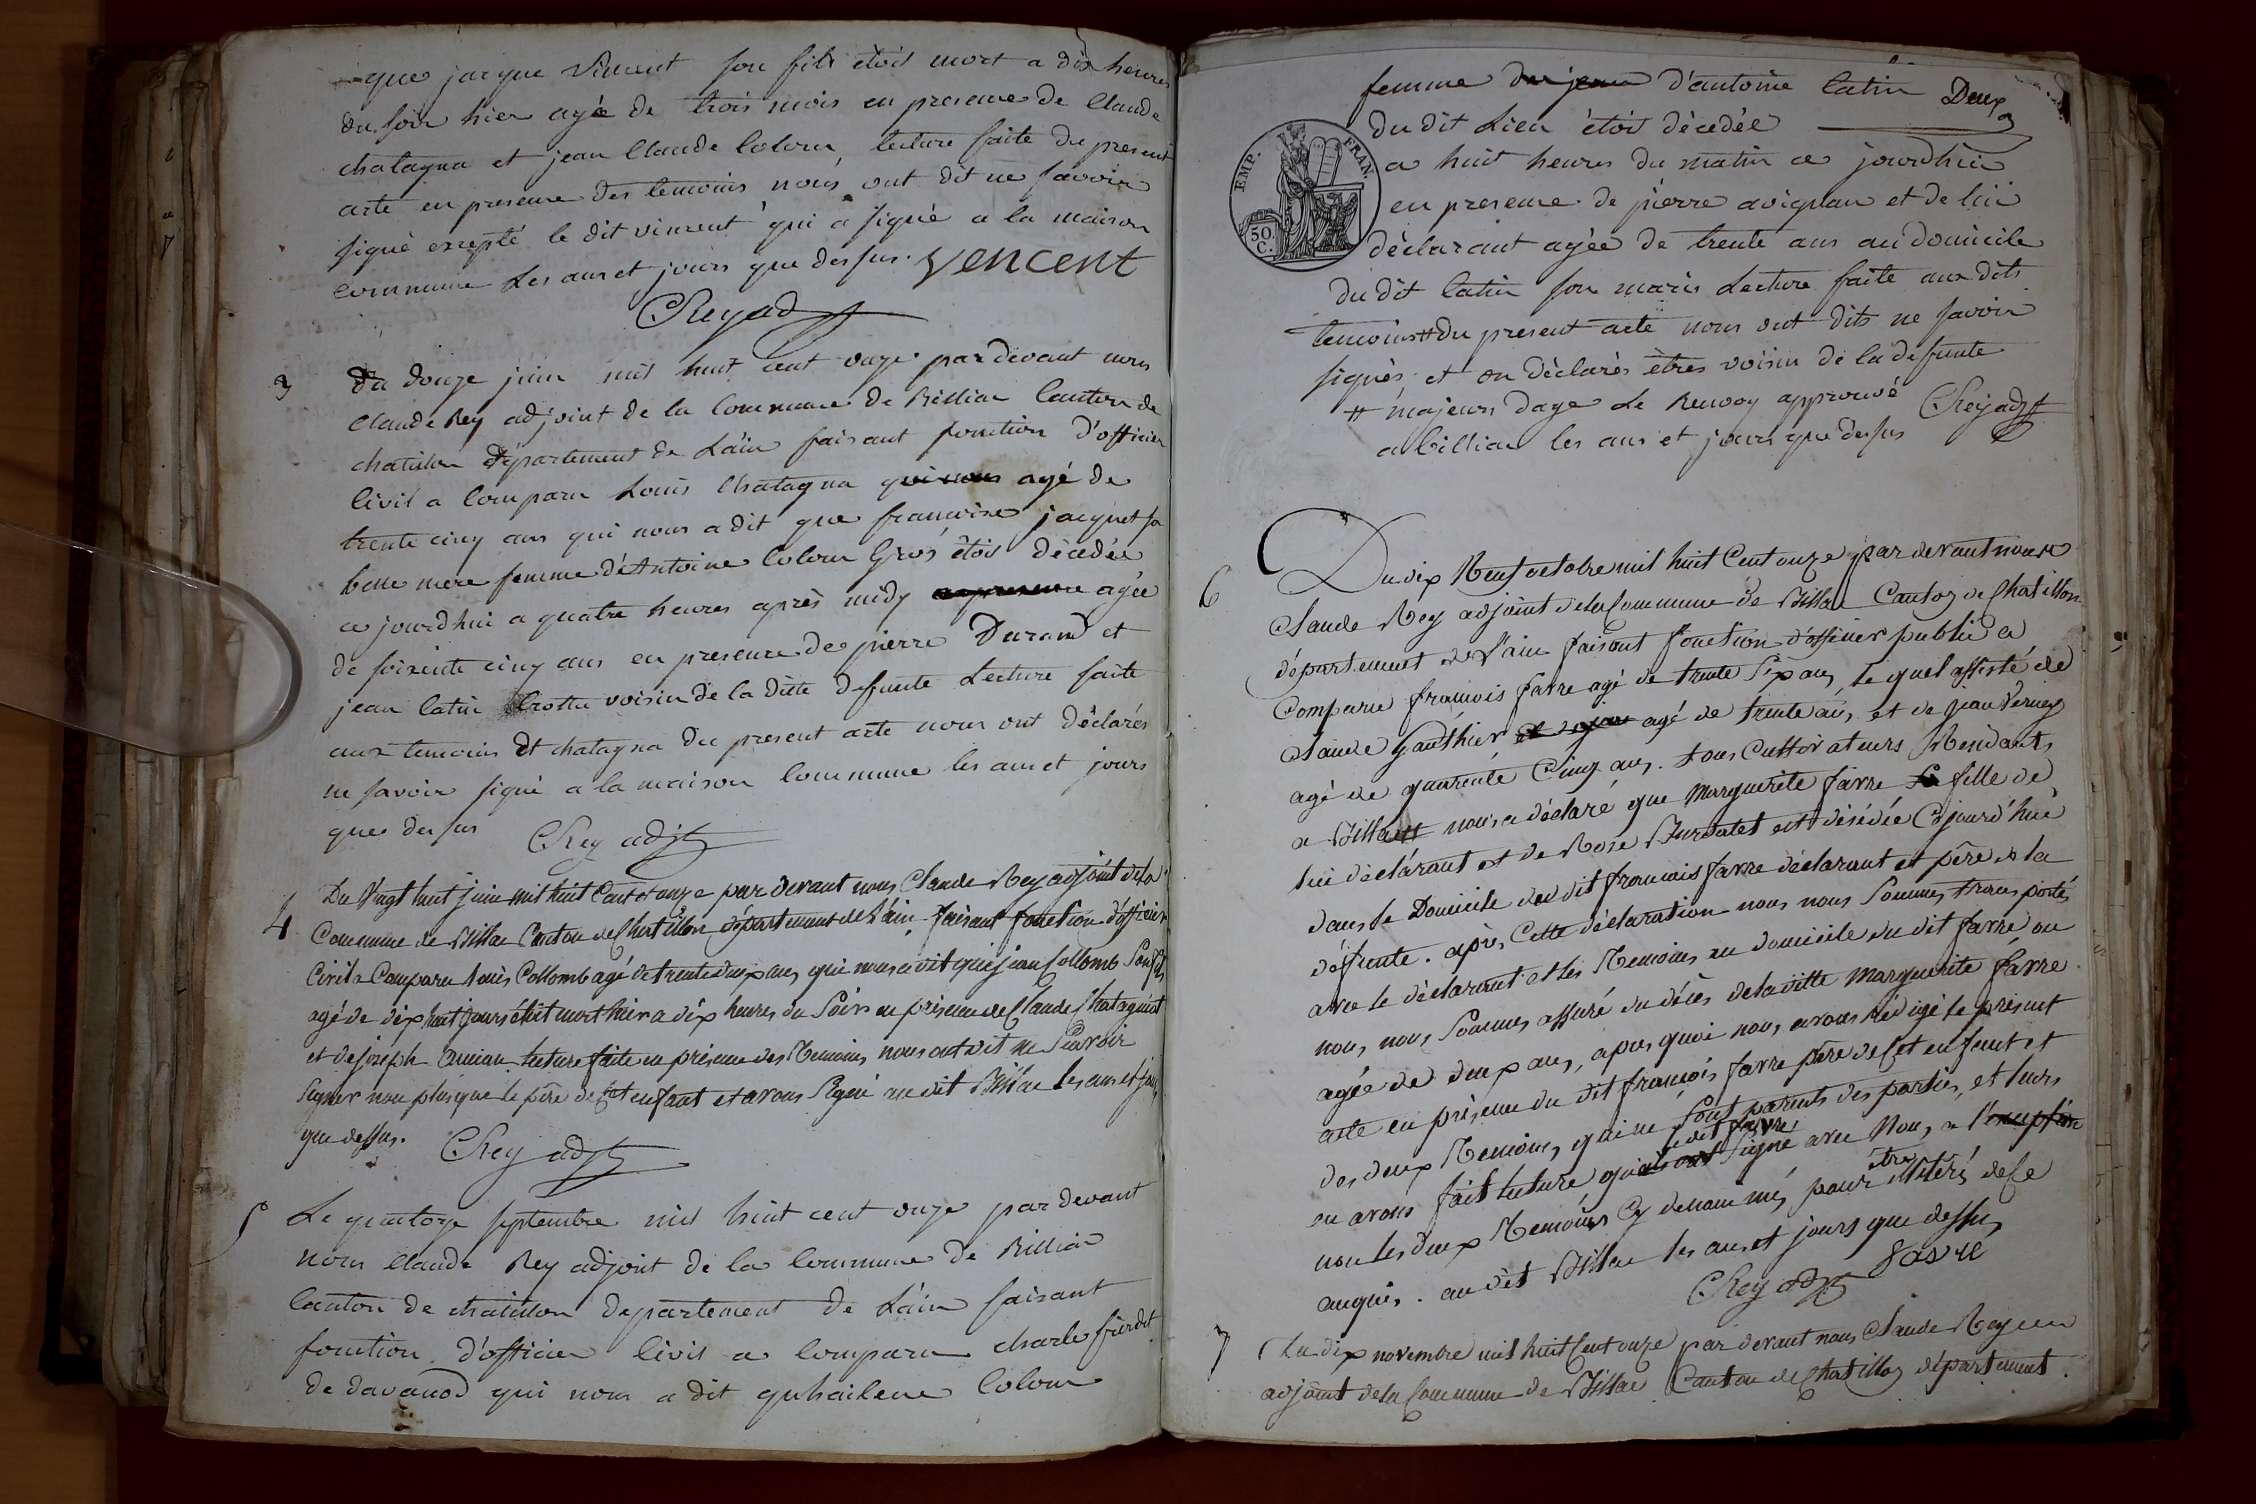 que jacque vincent son fils étois mort a dix heures
du soir hier agée de trois mois en presence de Claude
chatagna et jean Claude Colom, lecture faite du present
acte en presence des temoins nous ont dit ne savoir
signé excepté le dit vincent qui a signé a la maison
commune les ans et jours que dessus. vencent
C Rey adjt
3
du douze juin mil huit cent onze par devant nous
Claude Rey adjoint de la Commune de Billiac Canton de
chatillon département de Láin faisant fonction d'officier
Civil a Comparu Louis Chatagna qui nous agé de
trente cinq ans qui nous a dit que francoise jacquet sa
belle mere femme d'Antoine Colom Gros étois décedée
ce jourdhui a quatre heures après midy en presence agée
de soixente cinq ans en presence de pierre Durand et
jean Catin Crottu voisin de la ditte defunte Lecture faite
aux temoins et chatagna du present acte nous ont déclarés
ne savoir signé a la maison Commune les ans et jours
que dessus
C Rey adjt
4
Du Vingt huit juin mil huit Cent et onze par devant nous Claude Rey adjoint de la
Commune de Billiac Canton de Chatillon département de l'ain, faisant fonction d'officier
Civil a Comparu Louis Collomb agé de trente deux ans, qui nous a dit que jean Collomb Son fils
agé de dix huit jours étoit mort hier a dix heures du Soir en présence de Claude Chatagnat
et de joseph Ancian lecture faite en présence des Temoins, nous ont dit ne Scavoir
Signer non plus que le père de Cet enfant et avons Signé au dit Billiac les ans et jours
que dessus.
C Rey adjt
5
Le quatorze septembre mil huit cent onze par devant
nous Claude Rey adjoint de la Commune de Billiac
Canton de chatillon departement de Láin faisant
fonction d'officier Civil a Comparu charle
de davanod qui nous a dit Colom
femme du jean d'antoine Catin
Deux
du dit Lieu étois décedée
a huit heures du matin ce jourdhui
en presence de pierre avignan et de lui
EMP. FRAN.
50. C.
déclarant agée de trente ans au domicile
du dit Catin son maris Lecture faite aux dits
temoins # du present acte nous ont dits ne savoir
signés et on déclarés êtres voisin de la defunte
# majeurs dage Le Renvoy approuvé
C Rey adjt
a billiac les ans et jours que dessus
6
Du dix Neuf octobre mil huit Cent onze par devant nous
Claude Rey adjoint de la Commune de Billiac Canton de Chatillon
département de l'ain faisant fonction d'officier public a
Comparu francois favre agé de trente Six ans, le quel assisté de
Claude Gauthier et de jean agé de trente ans, et de jean Verney
agé de quarente Cinq ans. tous Cultivateurs Residants
a Billiac nous a déclaré que Marguerite favre Sa fille de
lui déclarant et de Rose Burdalet est désédée Cejourd'hui
dans le Domicile du dit francois favre déclarant et père de la
défunte. après Cette déclaration nous nous Sommes transportés
avec le déclarant et les Temoins au domicile du dit favre ou
nous, nous Sommes assuré du décès de la ditte Marguerite favre
agée de deux ans, apres quoi nous avons rédigé le présent
acte en présence du dit françois favre père de Cet enfant et
des deux Temoins, qui ne Sont parents des parties, et leurs
le dit favre
en avons fait lecture qui ils ont Signé avec Nous, a l'exception
être
non les deux Temoins Cy denommés pour illitéré de Ce
anquis. au dit Billiac les ans et jours que dessus,
C Rey adjt favre
7
Du dix novembre mil huit Cent onze par devant nous Claude Rey
adjoint de la Commune de Billiac Canton de Chatillon département